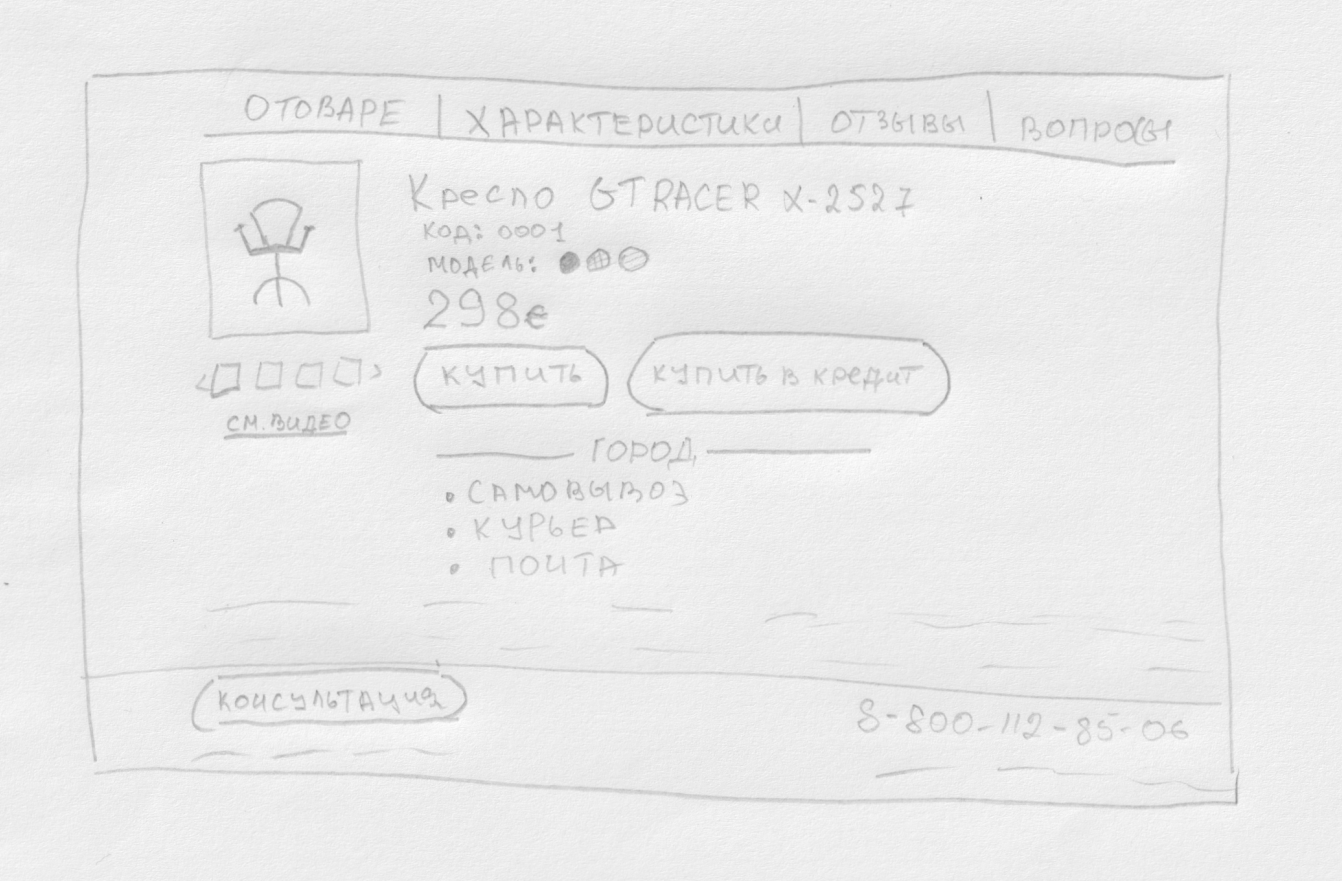 О ТОВАРЕ | ХАРАКТЕРИСТИКИ | ОТЗЫВЫ | ВОПРОСЫ
Кресло GT RACER X-2527
КОД: 0001
МОДЕЛЬ:
298€
КУПИТЬ КУПИТЬ В КРЕДИТ
СМ. ВИДЕО
ГОРОД
• САМОВЫВОЗ
• КУРЬЕР
• ПОЧТА
КОНСУЛЬТАЦИЯ
8-800-112-85-06